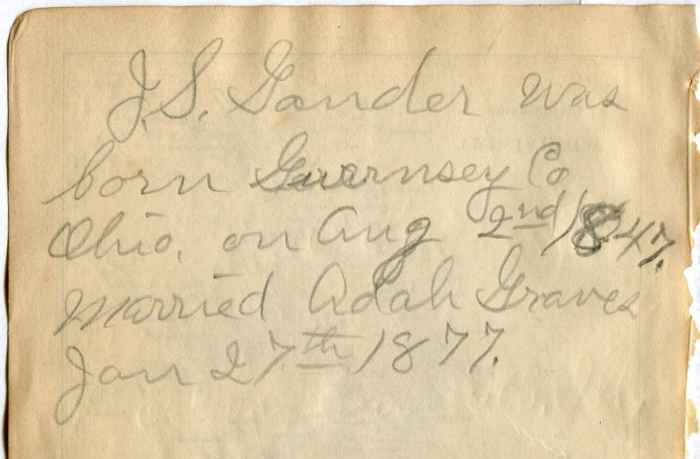 J.S. Gander was
born Guernsey Co
Ohio. on Aug 2nd 1847.
Married Adah Graves
Jan 27th 1877.